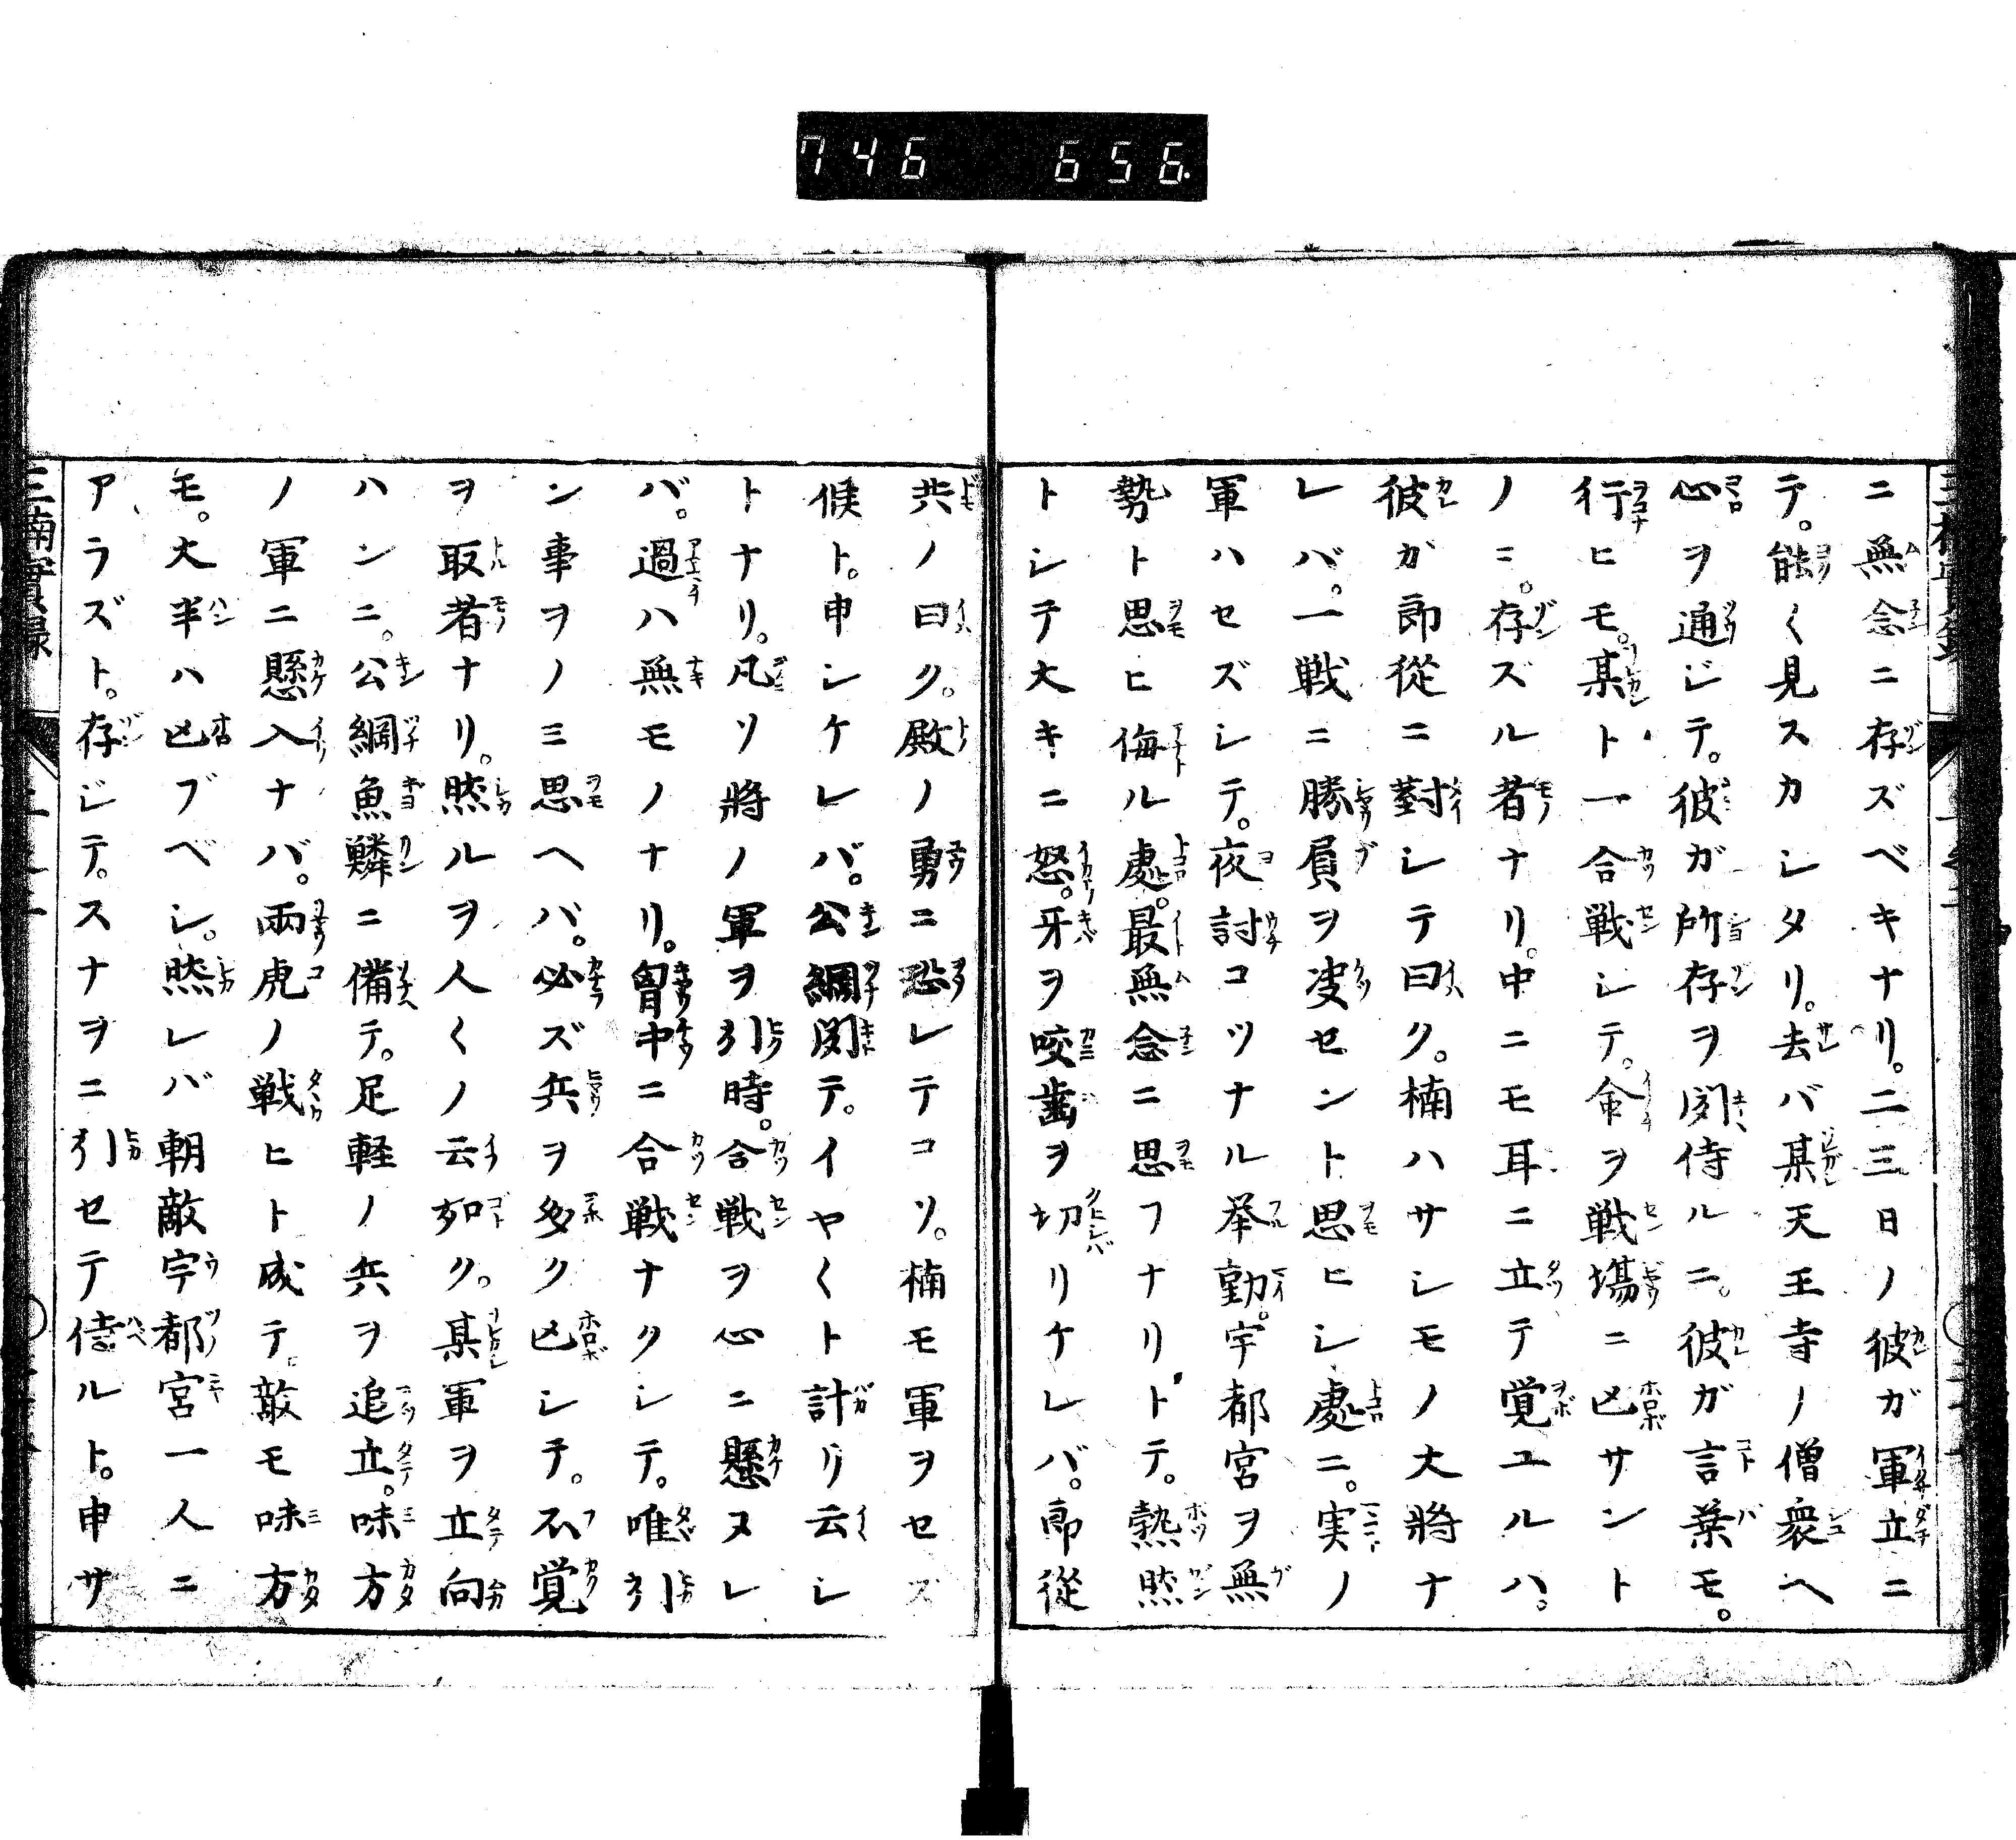 746 656
ニ無念ニ存ズベキナリ。二三日ノ彼ガ軍立ニ
テ。能〱見スカシタリ。去バ某天王寺ノ僧衆ヘ
心ヲ通ジテ。彼ガ所存ヲ聞侍ルニ。彼ガ言葉モ。
行ヒモ。某ト一合戦シテ。命ヲ戦場ニ亡サント
ノミ。存ズル者ナリ。中ニモ耳ニ立テ覚ユルハ。
彼ガ郎従ニ對シテ曰ク。楠ハサシモノ大将ナ
レバ。一戦ニ勝負ヲ決セント思ヒシ處ニ。実ノ
軍ハセズシテ。夜討コツナル挙動。宇都宮ヲ無
勢ト思ヒ侮ル處。最無念ニ思フナリトテ。熱然
トシテ大キニ怒。牙ヲ咬歯ヲ切リケレバ。郎従
共ノ曰ク。殿ノ勇ニ恐レテコソ。楠モ軍ヲセズ
候ト。申シケレバ。公綱聞テ。イヤ〱ト計リ云シ
トナリ。凡ソ將ノ軍ヲ引時。合戦ヲ心ニ懸ヌレ
バ。過ハ無モノナリ。胷中ニ合戦ナクシテ。唯引
ン事ヲノミ思ヘバ。必ズ兵ヲ多ク亡シテ。不覚
ヲ取者ナリ。然ルヲ人〱ノ云如ク。某軍ヲ立向
ハンニ。公綱魚鱗ニ備テ。足軽ノ兵ヲ追立。味方
ノ軍ニ懸入ナバ。両虎ノ戦ヒト成テ。敵モ味方
モ。大半ハ亡ブベシ。然レバ朝敵宇都宮一人ニ
アラズト。存ジテ。スナヲニ引セテ侍ルト。申サ
三楠實録